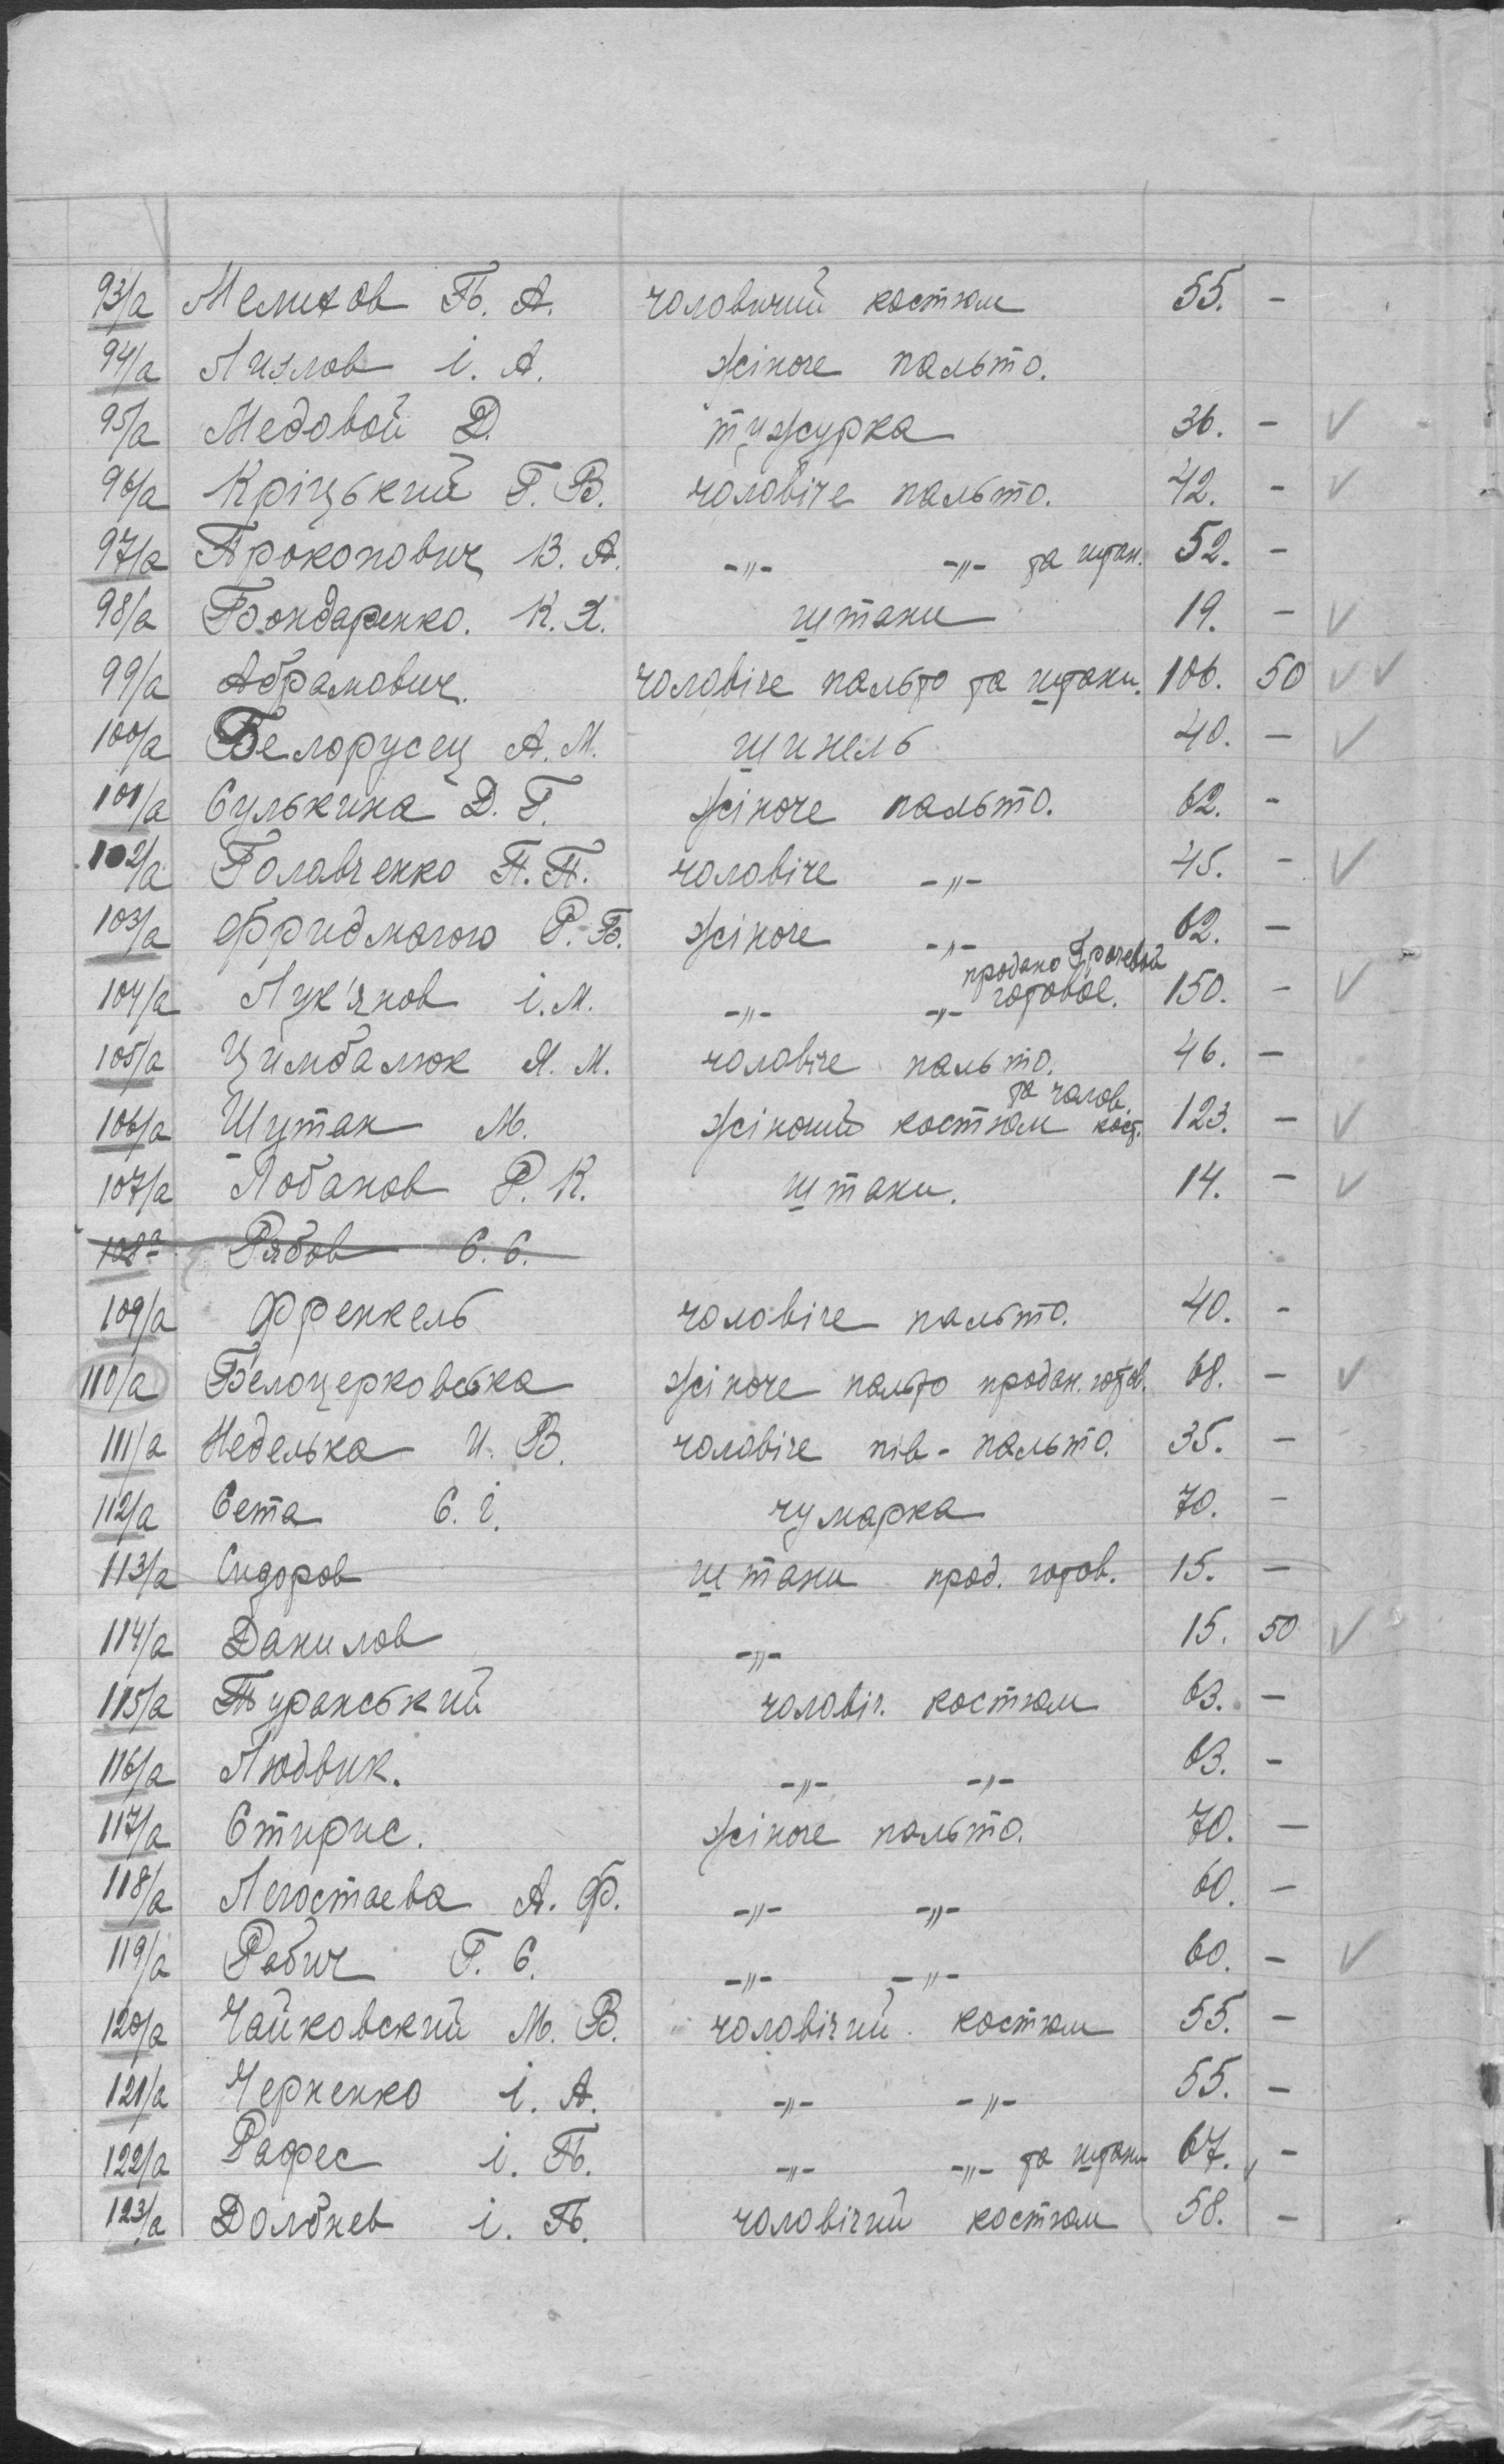 93/а Мелихов Б. А. чоловичий костюм 55. -
94/а Лизлов і. А. жіноче пальто.
95/а Медовой Д. тужурка 36. - ✓
96/а Кріцький Г. В. чоловіче пальто. 42. - ✓
97/а Прокопович В. А. -"- -"- та штан. 52. -
98/а Бондаренко. К. Х. штани 19. - ✓
99/а Абрамович. чоловіче пальто та штани. 106. 50 ✓ ✓
100/а Белорусец А. М. шинель 40. - ✓
101/а Сулькина Д. Г. жіноче пальто. 62. -
102/а Головченко П. П. чоловіче -"- 45. - ✓
103/а Фридмагою Р. Б. жіноче -"- 62. -
продано Грачевой
104/а Лук'янов і. М. -"- -"- готовое. 150. - ✓
105/а Цимбалюк Я. М. чоловіче пальто. 46. -
та чолов.
106/а Шутак М. жіночий костюм кост. 123. - ✓
107/а Лобанов Р. К. штани. 14. - ✓
108а Рябов С. С.
109/а Френкель чоловіче пальто. 40. -
110/а Белоцерковська жіноче пальто продан. готов. 68. - ✓
111/а Неделька И. В. чоловіче пів-пальто. 35. -
112/а Сета С. і. чумарка 70. -
113/а Сидоров штани прод. готов. 15. -
114/а Данилов -"- 15. 50 ✓
115/а Туранський чоловіч. костюм 63. -
116/а Людвик. -"- -"- 63. -
117/а Стирис. жіноче пальто. 70. -
118/а Легостаева А. Ф. -"- -"- 60. -
119/а Рабич Г. С. -"- -"- 60. - ✓
120/а Чайковский М. В. чоловічий костюм 55. -
121/а Черненко і. А. -"- -"- 55. -
122/а Рафес і. Б. -"- -"- та штани 67. -
123/а Долбнев і. Б. чоловічий костюм 58. -